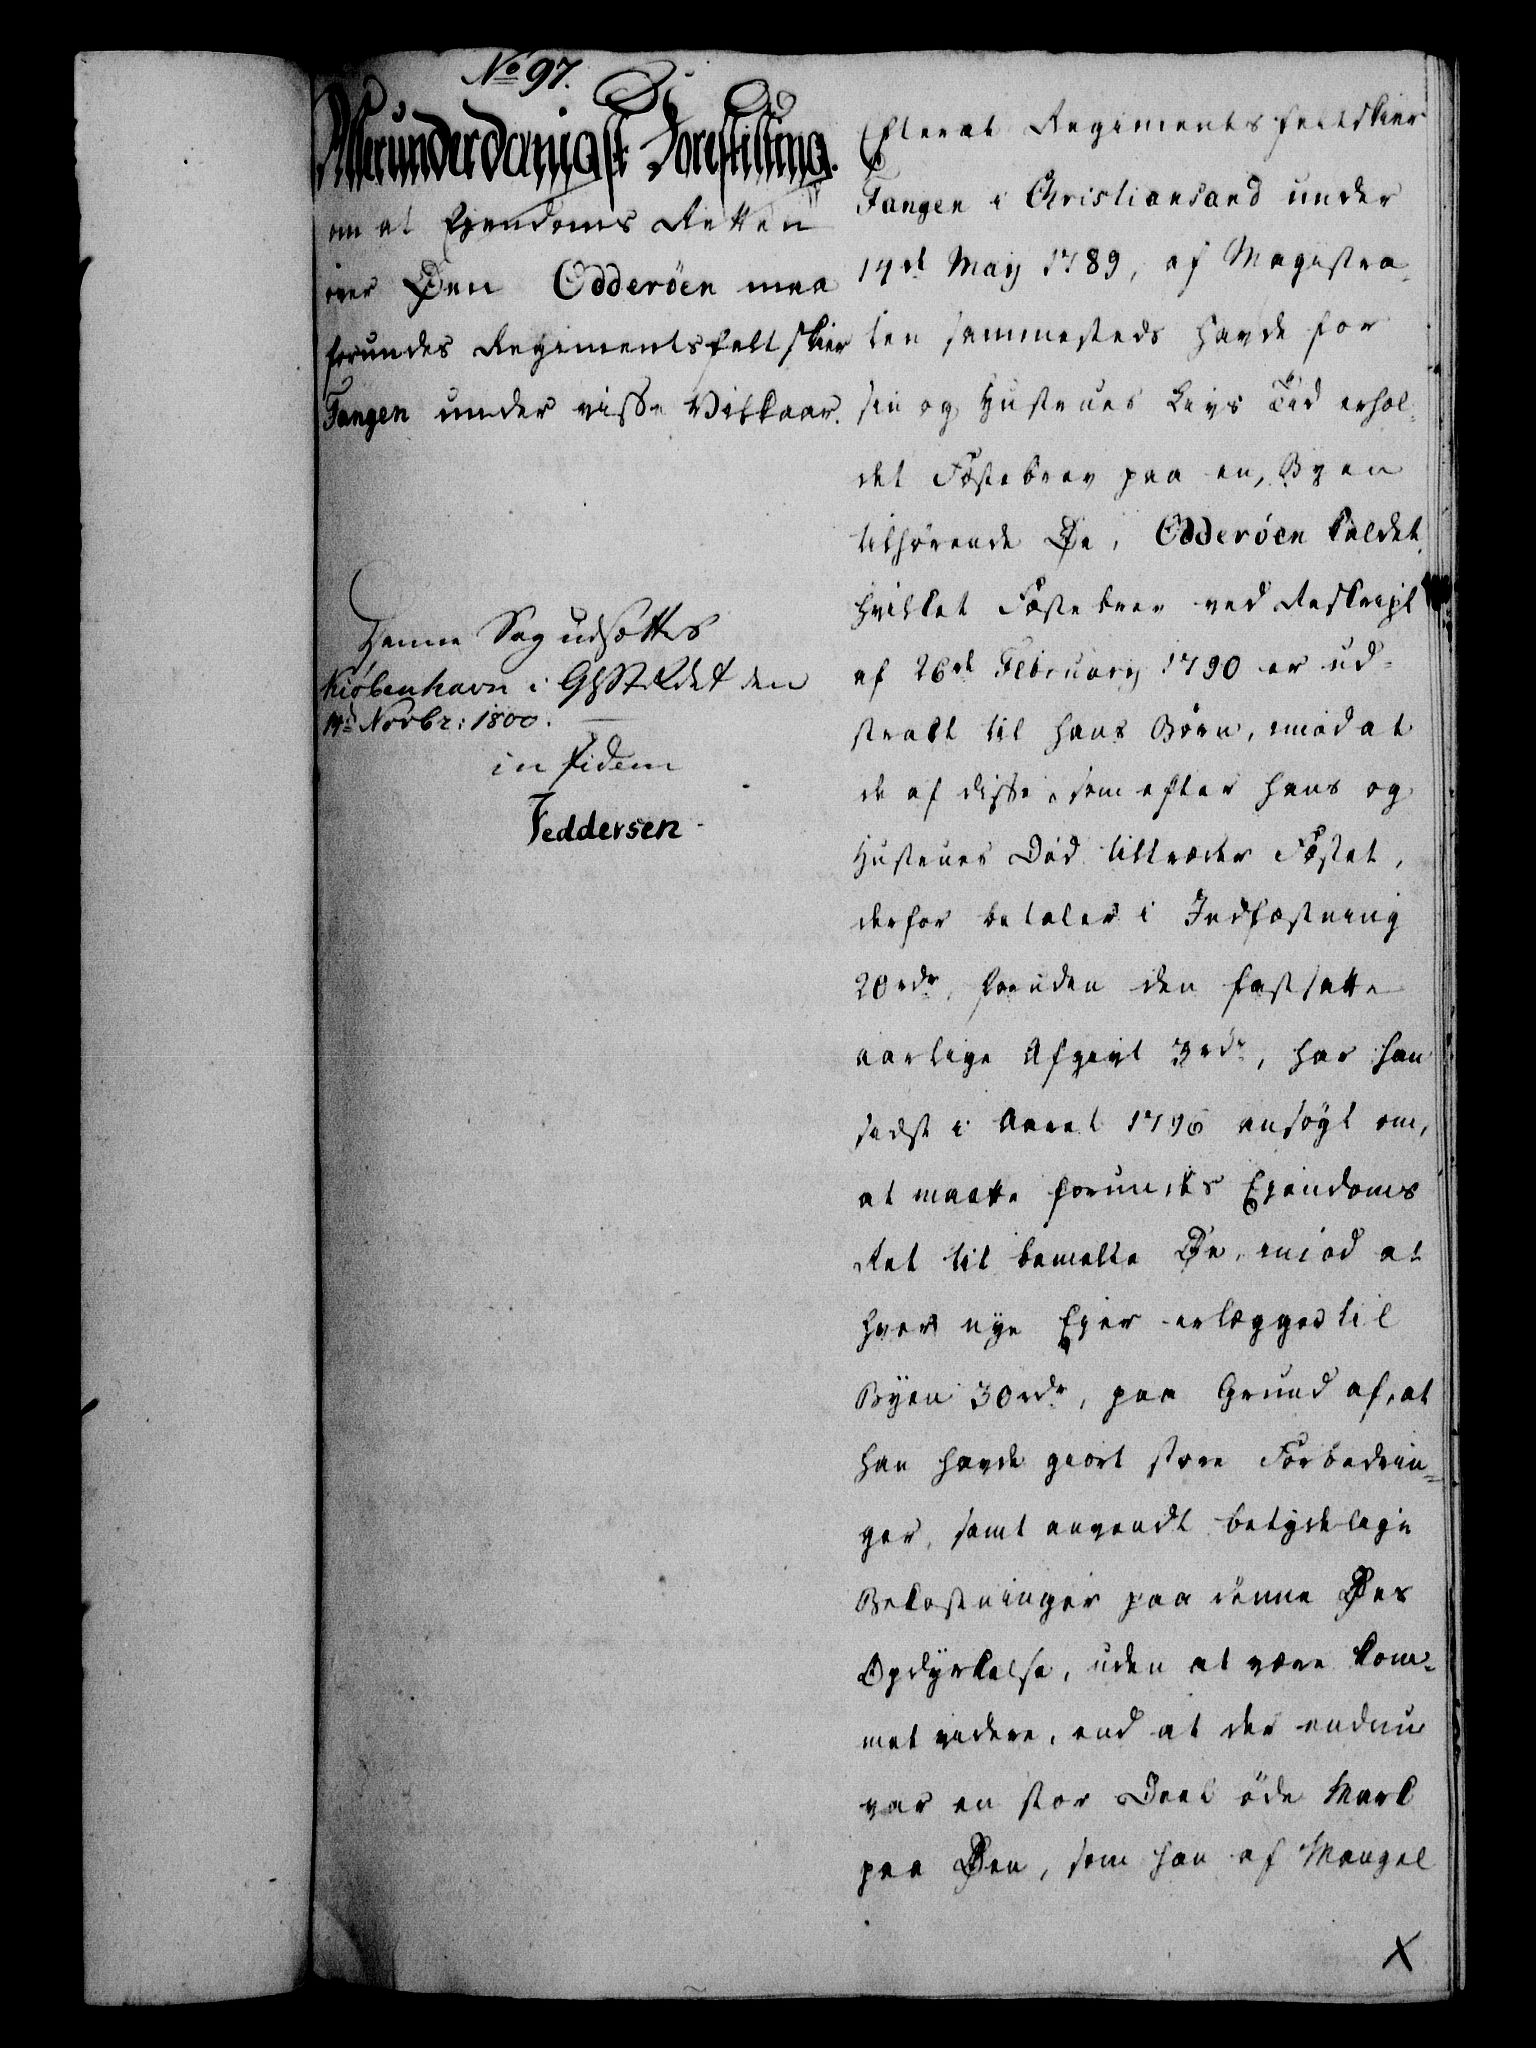 No 97.
Allerunderdanigst Forestilling.
om at Ejendoms Retten
over Øen Odderöen maa
forundes Regimentsfeltskier
Fangen under visse Vilkaar.
Denne Sag udsættes
Kiöbenhavn i Statsraadet den
14d Novbr: 1800.
in fidem
Feddersen
Efterat Regimentsfeltskier
Fangen i Christiansand under
14de May 1789, af Magistra-
ten sammesteds havde for
sin og Hustrues Livs Tid erhol-
det Fæstebrev paa en, Byen
tilhørende Øe, Odderöen kaldet,
hvilket Fæstebrev ved Reskript
af 26de Februarij 1790 er ud-
strakt til hans Börn, imod at
de af disse, som efter hans og
Hustrues Död tiltræder Fæstet,
derfor betaler i Indfæstning
20 rdr, foruden den fastsatte
aarlige Afgivt 3 rdr, har han
sidst i Aaret 1796 ansögt om,
at maatte forundes Ejendoms
Ret til bemelte Øe, imod at
hver nye Ejer erlægger til
Byen 30 rdr, paa Grund af, at
han havde giort store Forbedrin-
ger, samt anvendt betydelige
Bekostninger paa denne Øes
Opdÿrkelse, uden at være kom-
met videre, end at der endnu
var en stor Deel öde Mark
paa Øen, som han af Mangel
X